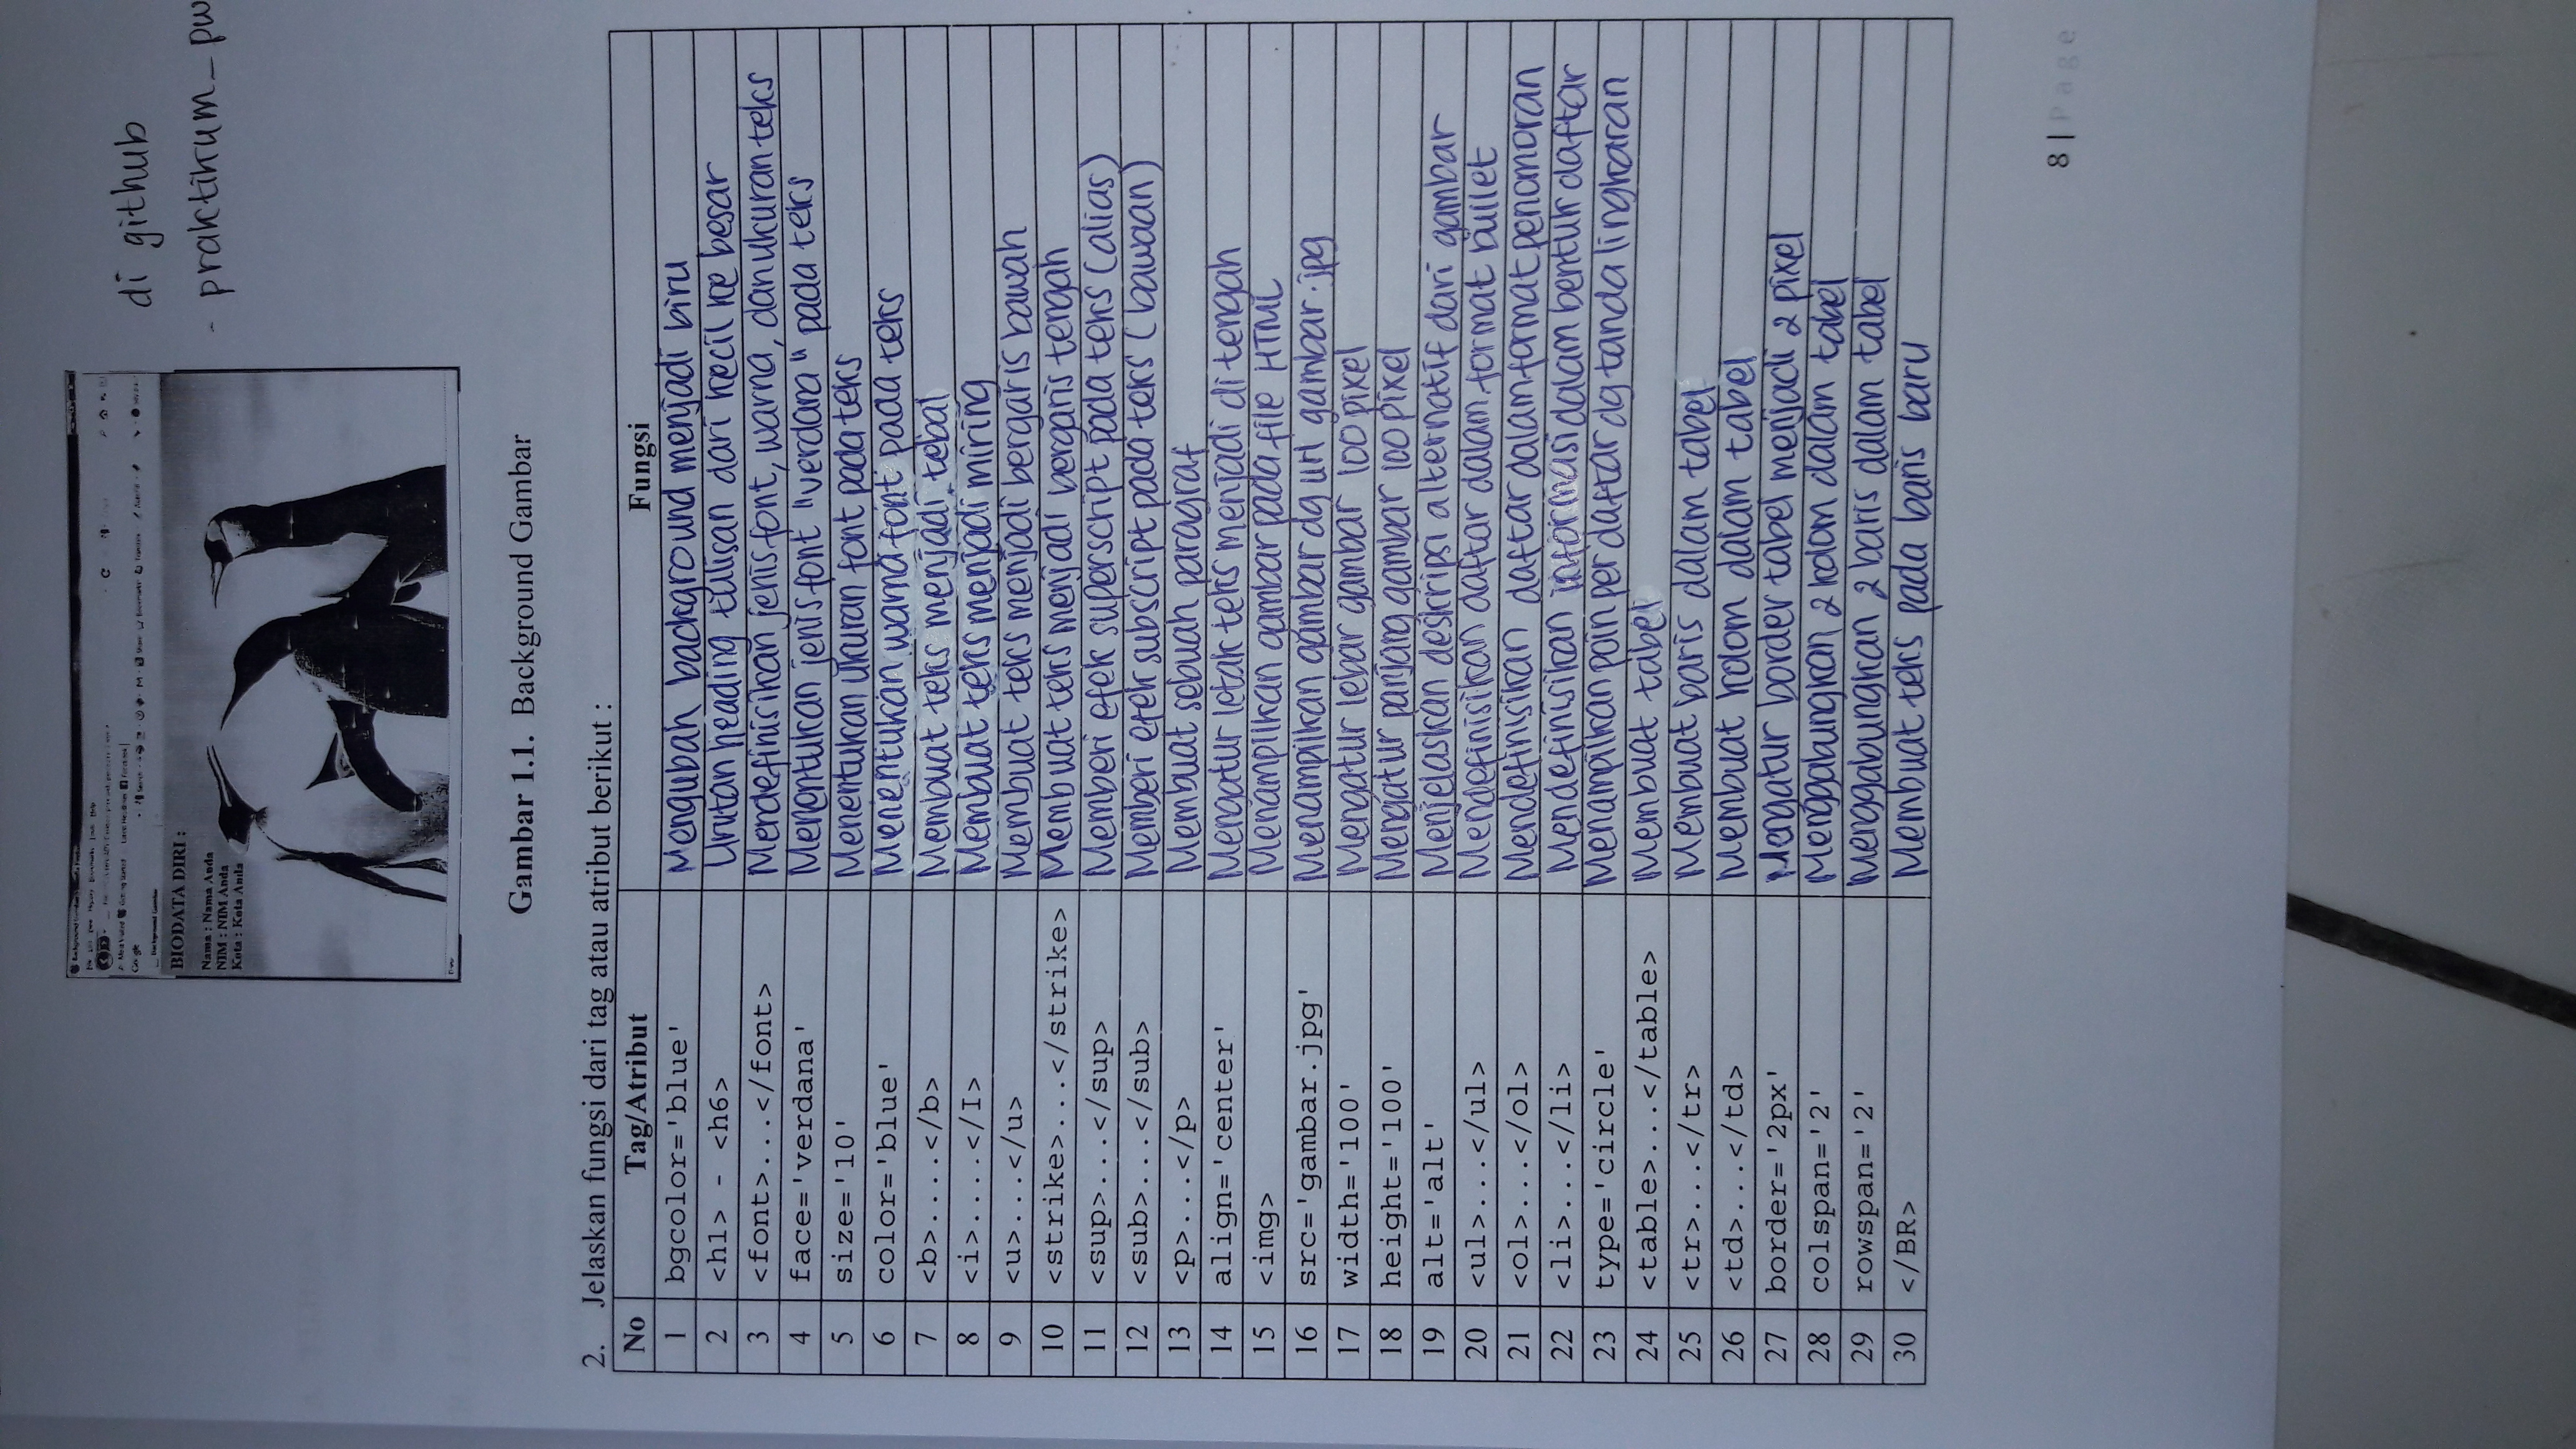 di github
- praktikum_pw
BIODATA DIRI :
Nama : Nama Anda
NIM : NIM Anda
Kota : Kota Anda
Gambar 1.1. Background Gambar
2. Jelaskan fungsi dari tag atau atribut berikut :
No Tag/Atribut Fungsi
1 bgcolor='blue' Mengubah background menjadi biru
2 <h1> - <h6> Urutan heading tulisan dari kecil ke besar
3 <font>...</font> Mendefinisikan jenis font, warna, dan ukuran teks
4 face='verdana' Menentukan jenis font "verdana" pada teks
5 size='10' Menentukan ukuran font pada teks
6 color='blue' Menentukan warna font pada teks
7 <b>....</b> Membuat teks menjadi tebal
8 <i>....</I> Membuat teks menjadi miring
9 <u>...</u> Membuat teks menjadi bergaris bawah
10 <strike>...</strike> Membuat teks menjadi bergaris tengah
11 <sup>...</sup> Memberi efek superscript pada teks (alias)
12 <sub>...</sub> Memberi efek subscript pada teks (bawaan)
13 <p>...</p> Membuat sebuah paragraf
14 align='center' Mengatur letak teks menjadi di tengah
15 <img> Menampilkan gambar pada file HTML
16 src='gambar.jpg' Menampilkan gambar dg url gambar.jpg
17 width='100' Mengatur lebar gambar 100 pixel
18 height='100' Mengatur panjang gambar 100 pixel
19 alt='alt' Menjelaskan deskripsi alternatif dari gambar
20 <ul>...</ul> Mendefinisikan daftar dalam format bullet
21 <ol>...</ol> Mendefinisikan daftar dalam format penomoran
22 <li>...</li> Mendefinisikan informasi dalam bentuk daftar
23 type='circle' Menampilkan poin per daftar dg tanda lingkaran
24 <table>...</table> Membuat tabel
25 <tr>...</tr> Membuat baris dalam tabel
26 <td>...</td> Membuat kolom dalam tabel
27 border='2px' Mengatur border tabel menjadi 2 pixel
28 colspan='2' Menggabungkan 2 kolom dalam tabel
29 rowspan='2' Menggabungkan 2 baris dalam tabel
30 </BR> Membuat teks pada baris baru
8 | Page